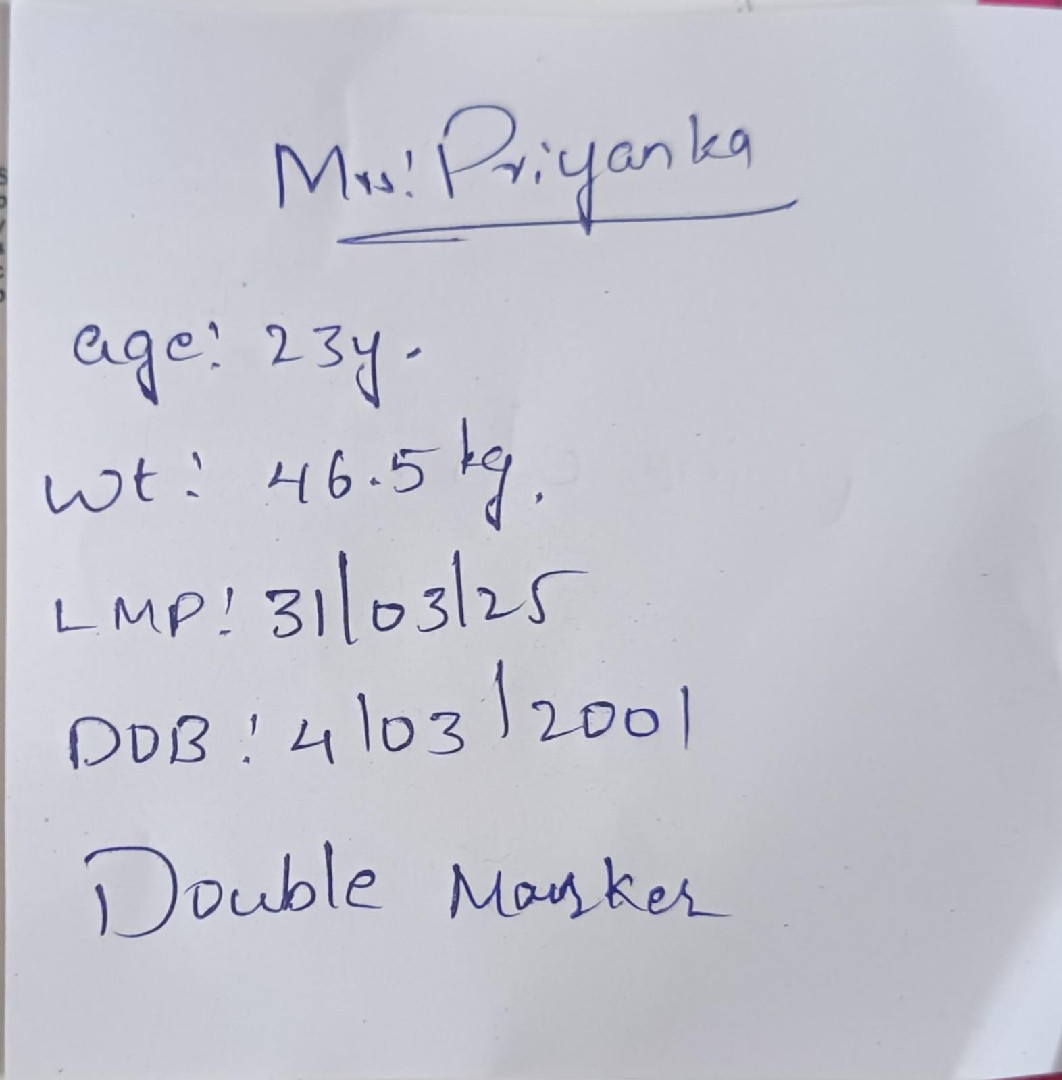 Mrs: Priyanka
age: 23y.
Wt: 46.5 kg.
LMP: 31/03/25
DOB: 4/03/2001
Double Marker